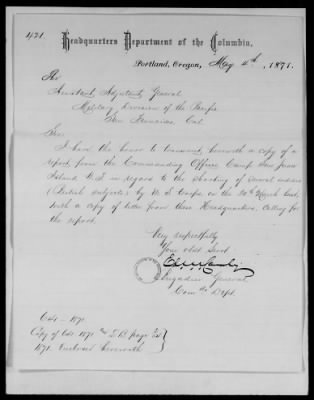 421.
Headquarters Department of the Columbia,
Portland, Oregon, May 4th, 1871.
The
Assistant Adjutant General
Military Division of the Pacific
San Francisco Cal
Sir:
I have the honor to transmit herewith a copy of a
report from the Commanding Officer Camp San Juan
Island, W.T. in regard to the shooting of several indians
(British subjects) by U.S. troops, on the 30th March last,
with a copy of letter from these Headquarters, calling for
the report.
Very respectfully
Your obdt Servt
Brigadier General,
Com'dg Dept.
1871
Copy of 1871 page
1871. Enclosed herewith